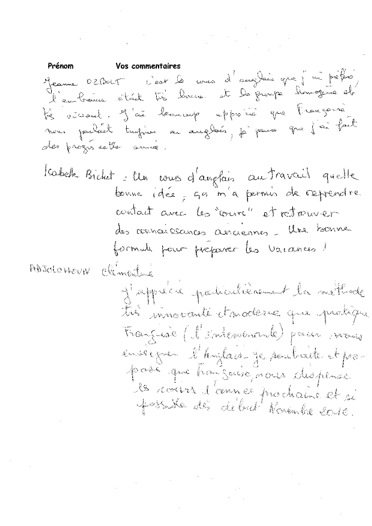 Prénom Vos commentaires
Jeanne c'est le cours d'anglais que j'ai préféré,
l'ambiance était très bonne et le groupe homogène et
très vivant. J'ai beaucoup apprécié que Françoise
nous parlait toujours en anglais, je pense que j'ai fait
des progrès cette année.
Isabelle Bichet : Un cours d'anglais au travail quelle
bonne idée, ça m'a permis de reprendre
contact avec les "cours" et retrouver
des connaissances anciennes - Une bonne
formule pour préparer les vacances !
Clémentine
J'apprécie particulièrement la méthode
très innovante et moderne que pratique
Françoise (l'intervenante) pour nous
enseigner l'Anglais. Je souhaite et pro-
pose que Françoise, nous dispense
les cours l'année prochaine et si
possible dès début Novembre 2016.